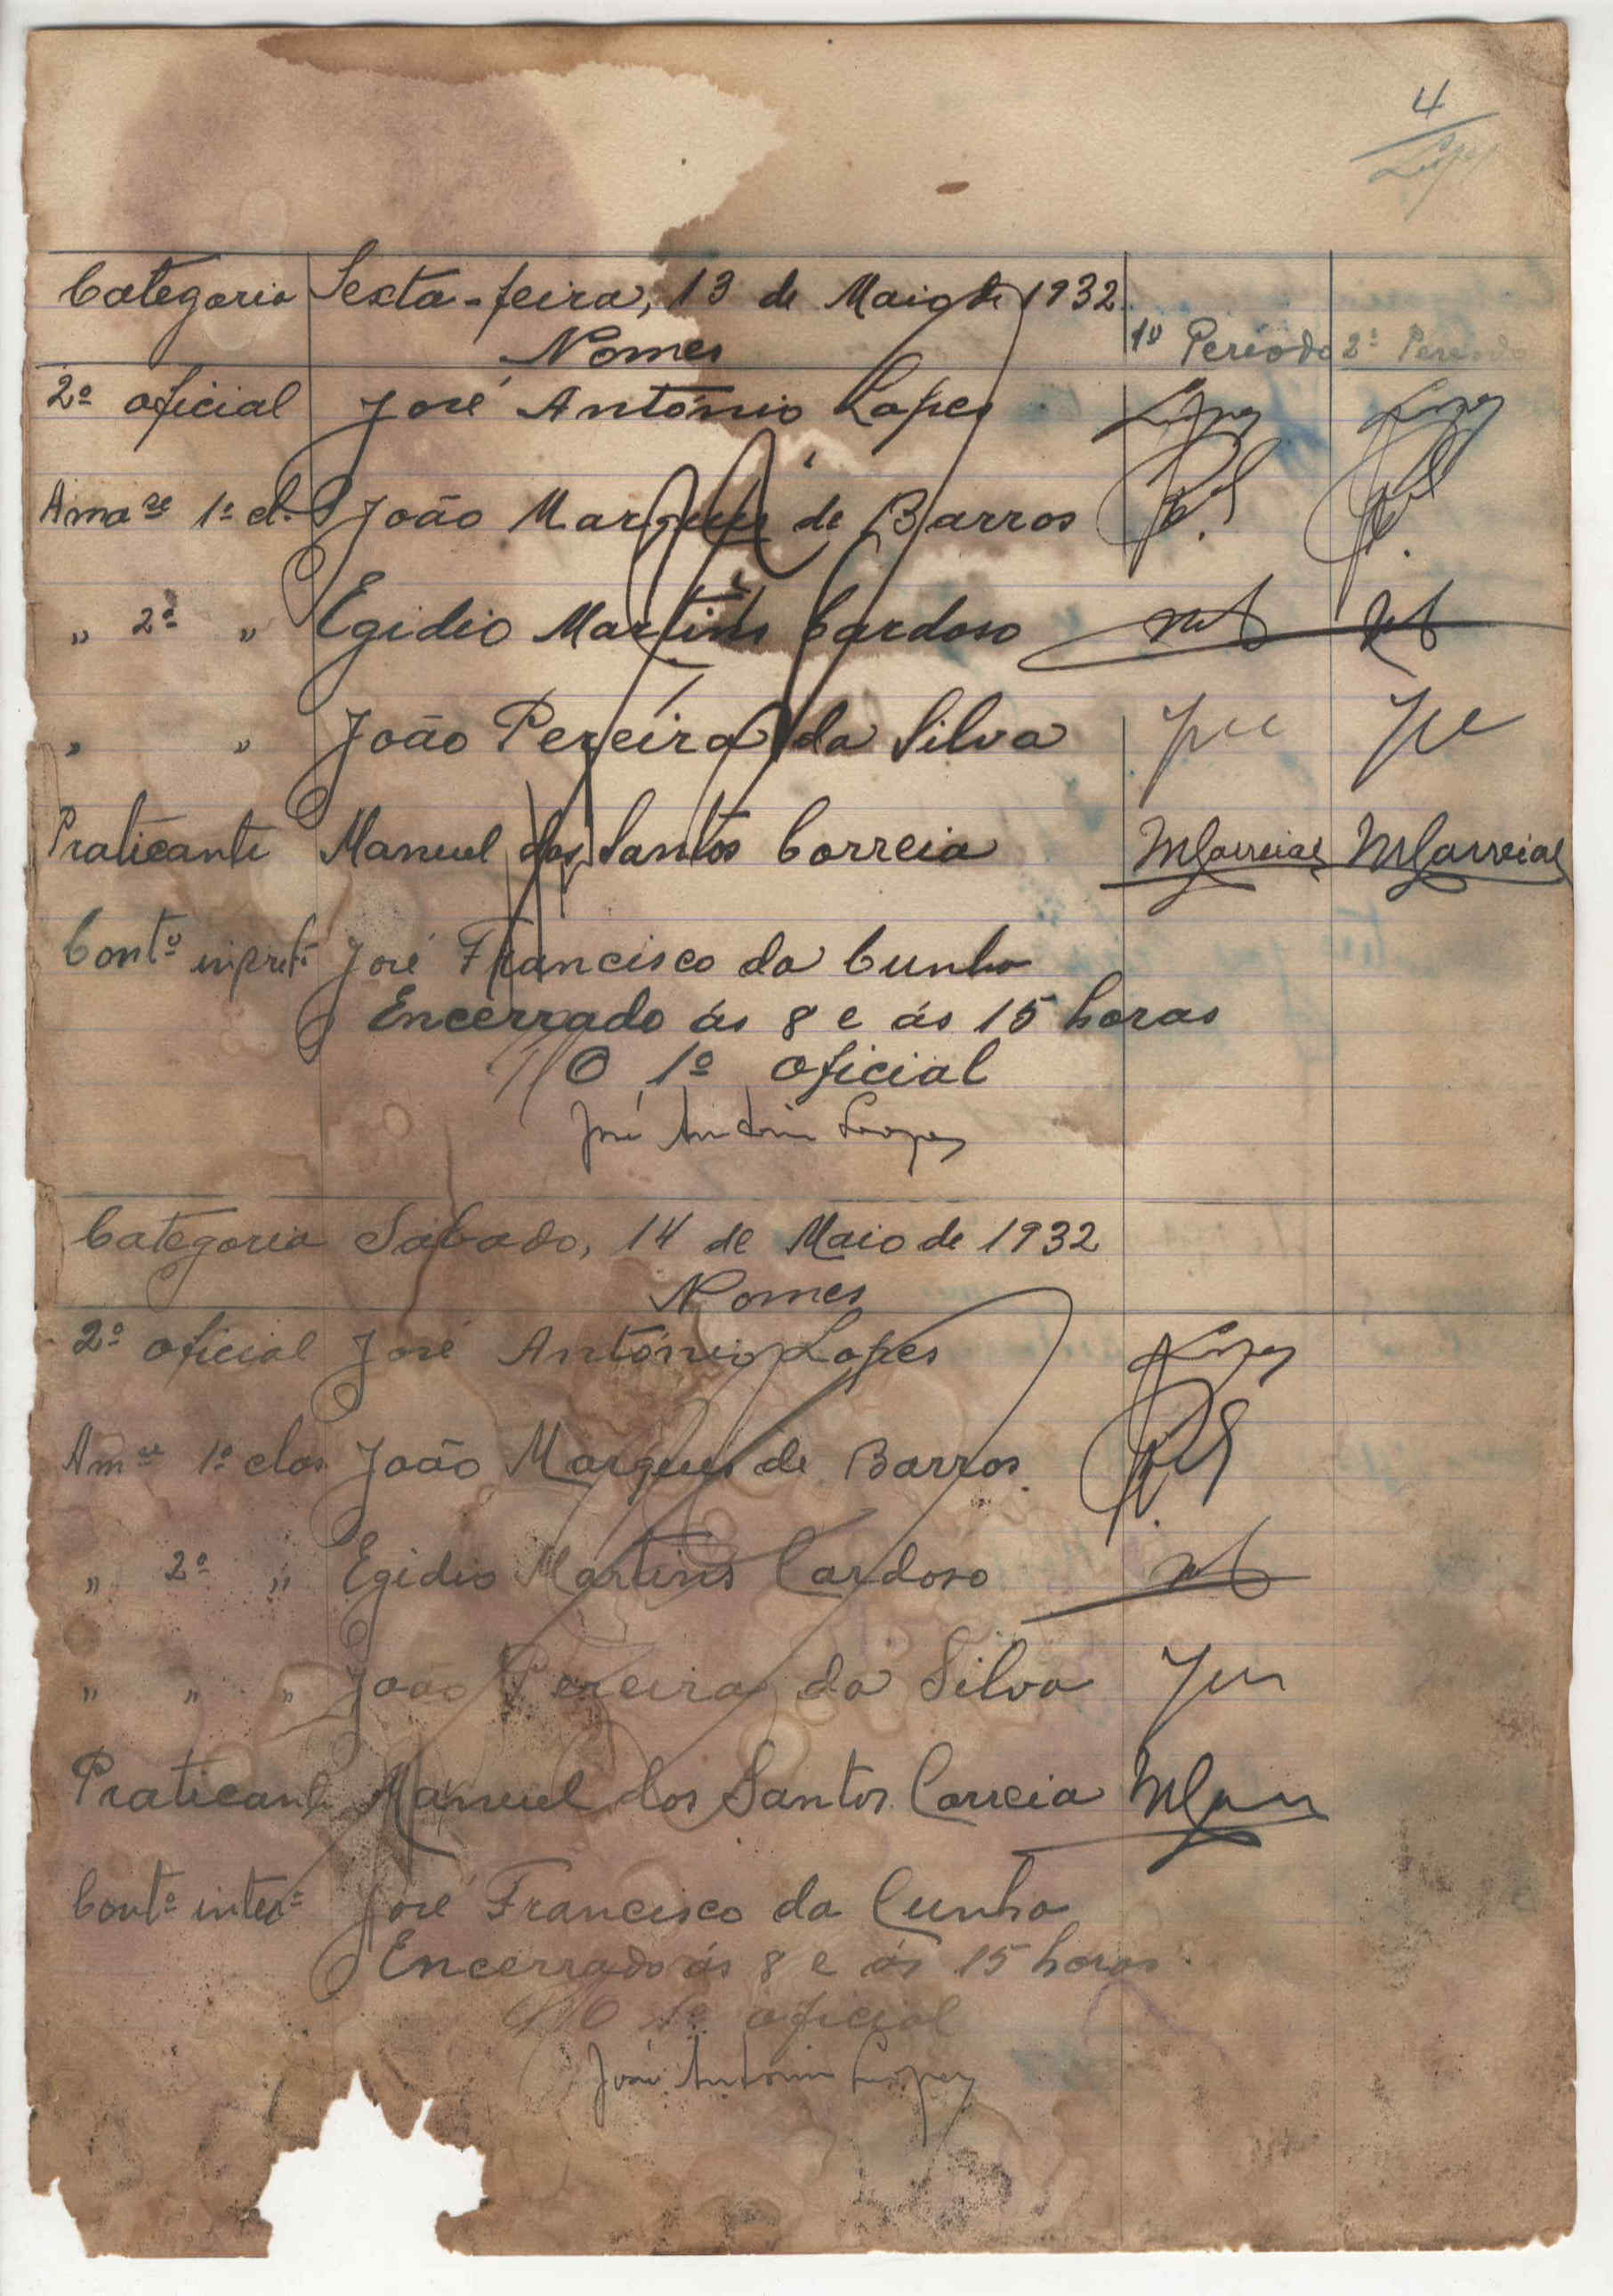 4
Lopes
Categoria Sexta-feira, 13 de Maio de 1932
Nomes 1º Período 2º Período
2º oficial José António Lopes Lopes Lopes
Ama.se 1ª cl. João Marques de Barros
„ 2ª „ Egidio Martins Cardoso
„ „ João Pereira da Silva
Praticante Manuel dos Santos Correia MCorreia MCorreia
Cont.º José Francisco da Cunha
Encerrado ás 8 e ás 15 horas
O 1º oficial
José António Lopes
Categoria Sábado, 14 de Maio de 1932
Nomes
2º oficial José António Lopes Lopes
Am.se 1ª clas João Marques de Barros
„ 2ª „ Egidio Martins Cardoso
„ „ „ João Pereira da Silva
Praticante Manuel dos Santos Correia
Cont.º inter.º José Francisco da Cunha
Encerrado ás 8 e ás 15 horas
O 1º oficial
José António Lopes